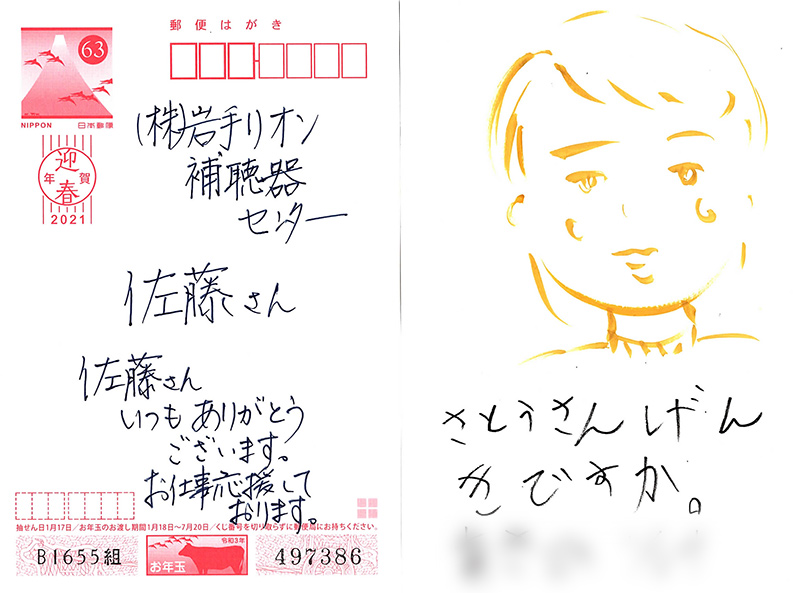 郵便はがき
63
NIPPON 日本郵便
迎春
年賀
2021
(株)岩手リオン
補聴器
センター
佐藤さん
佐藤さん
いつもありがとう
ございます。
お仕事応援して
おります。
抽せん日1月17日／お年玉のお渡し期間1月18日〜7月20日／くじ番号を切り取らずに郵便局にお持ちください。
B1655組
令和3年
お年玉
497386
さとうさん げん
きですか。